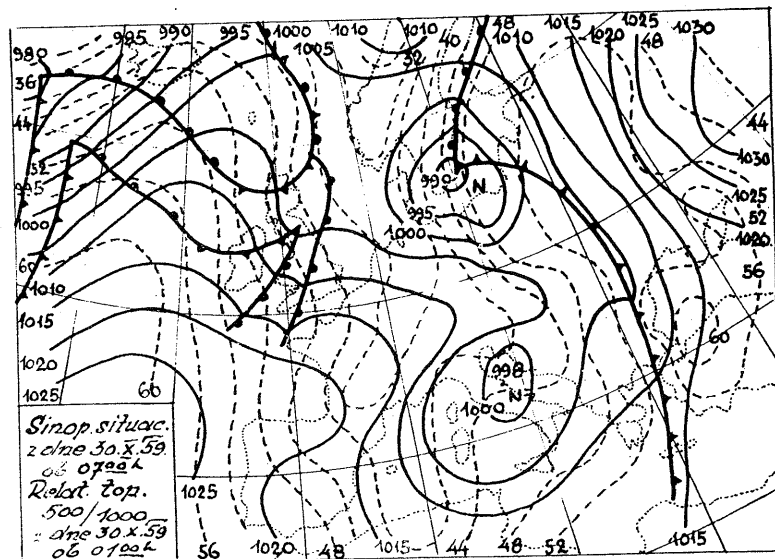 985 990 995 1000 1010 1010 48 1015 1025 1030
980 1005 40 1010 1020 48
36 32
44 44
52 1030
995 990 N 1025
1000 995 52
1000 1020
60 56
1010
1015
60
1020 998
1025 60 1000 N
Sinop. situac.
z dne 30.X.59
ob 07ººh
Relat. top.
500/1000
z dne 30.X.59
ob 01ººh
1025
56 1020 48 1015 44 48 52 1015